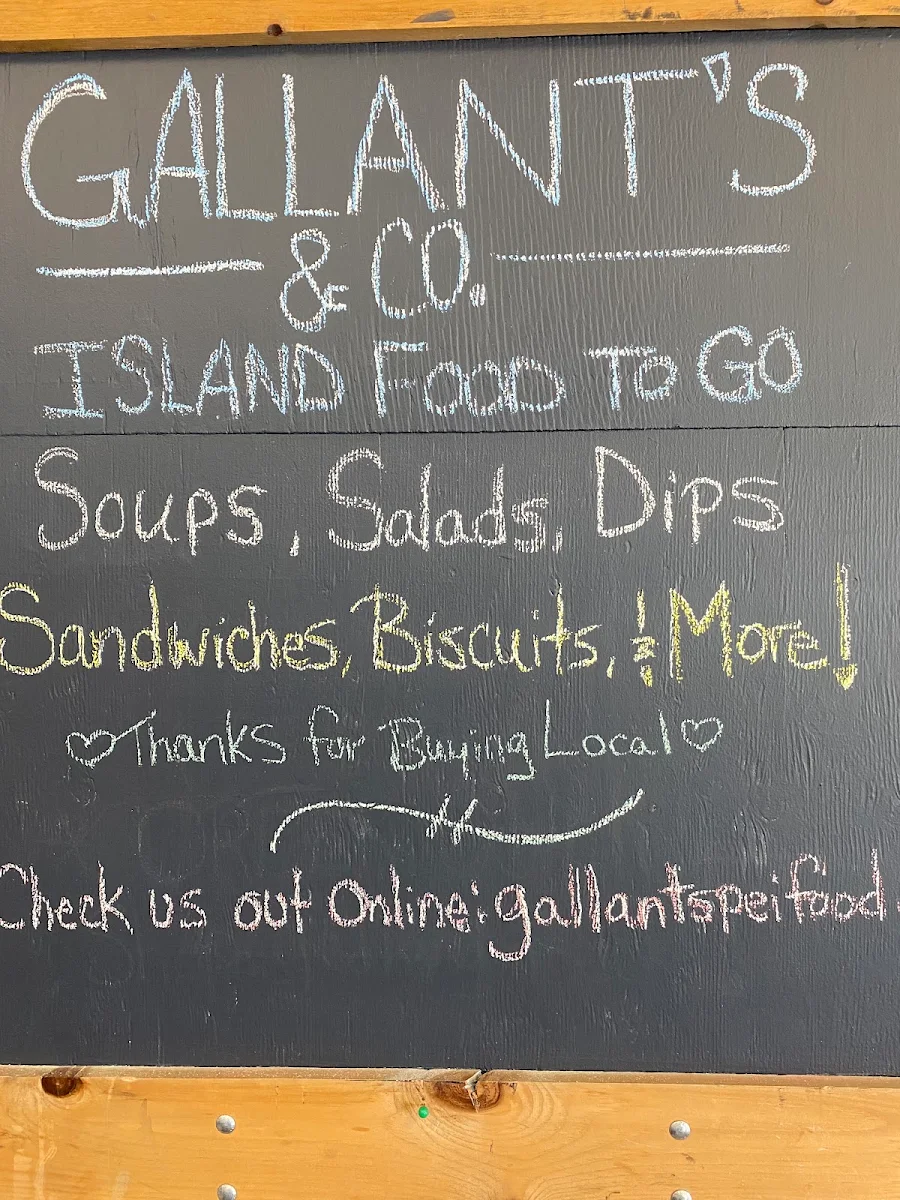 GALLANT'S
& CO.
ISLAND FOOD TO GO
Soups, Salads, Dips
Sandwiches, Biscuits, & More!
Thanks for Buying Local
Check us out Online: gallantspeifood.